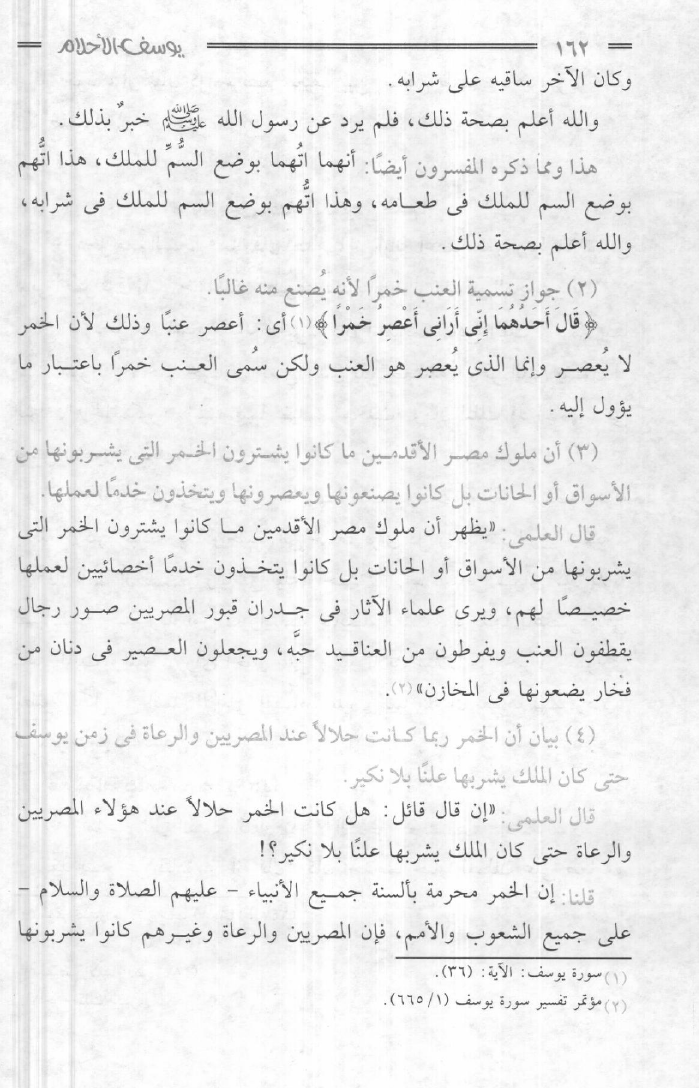 ١٦٢ يوسف الأحلام
وكان الآخر ساقيه على شرابه.
والله أعلم بصحة ذلك، فلم يرد عن رسول الله ﷺ خبرٌ بذلك.
هذا ومما ذكره المفسرون أيضًا: أنهما اتُهما بوضع السُّمِّ للملك، هذا اتُّهم
بوضع السم للملك فى طعـامه، وهذا اتُّهم بوضع السم للملك فى شرابه،
والله أعلم بصحة ذلك.
(٢) جواز تسمية العنب خمرًا لأنه يُصنع منه غالبًا.
﴿ قَالَ أَحَدُهُمَا إِنِّى أَرَانِى أَعْصِرُ خَمْرًا ﴾(١) أى: أعصر عنبًا وذلك لأن الخمر
لا يُعصـر وإنما الذى يُعصر هو العنب ولكن سُمى العنب خمرًا باعتـبار ما
يؤول إليه.
(٣) أن ملوك مصـر الأقدمـين ما كانوا يشـترون الخـمر التى يشـربونها من
الأسواق أو الحانات بل كانوا يصنعونها ويعصرونها ويتخذون خدمًا لعملها.
قال العلمى: «يظهر أن ملوك مصر الأقدمين مـا كانوا يشترون الخمر التى
يشربونها من الأسواق أو الحانات بل كانوا يتخـذون خدمًا أخصائيين لعملها
خصيـصًا لهم، ويرى علماء الآثار فى جـدران قبور المصريين صـور رجال
يقطفون العنب ويفرطون من العناقـيد حبَّه، ويجعلون العـصير فى دنان من
فخار يضعونها فى المخازن»(٢).
(٤) بيان أن الخمر ربما كـانت حلالاً عند المصريين والرعاة فى زمن يوسف
حتى كان الملك يشربها علنًا بلا نكير.
قال العلمى: «إن قال قائل: هل كانت الخمر حلالاً عند هؤلاء المصريين
والرعاة حتى كان الملك يشربها علنًا بلا نكير؟!
قلنا: إن الخمر محرمة بألسنة جمـيع الأنبياء - عليهم الصلاة والسلام -
على جميع الشعوب والأمم، فإن المصريين والرعاة وغيـرهم كانوا يشربونها
(١) سورة يوسف: الآية: (٣٦).
(٢) مؤتمر تفسير سورة يوسف (١/ ٦٦٥).